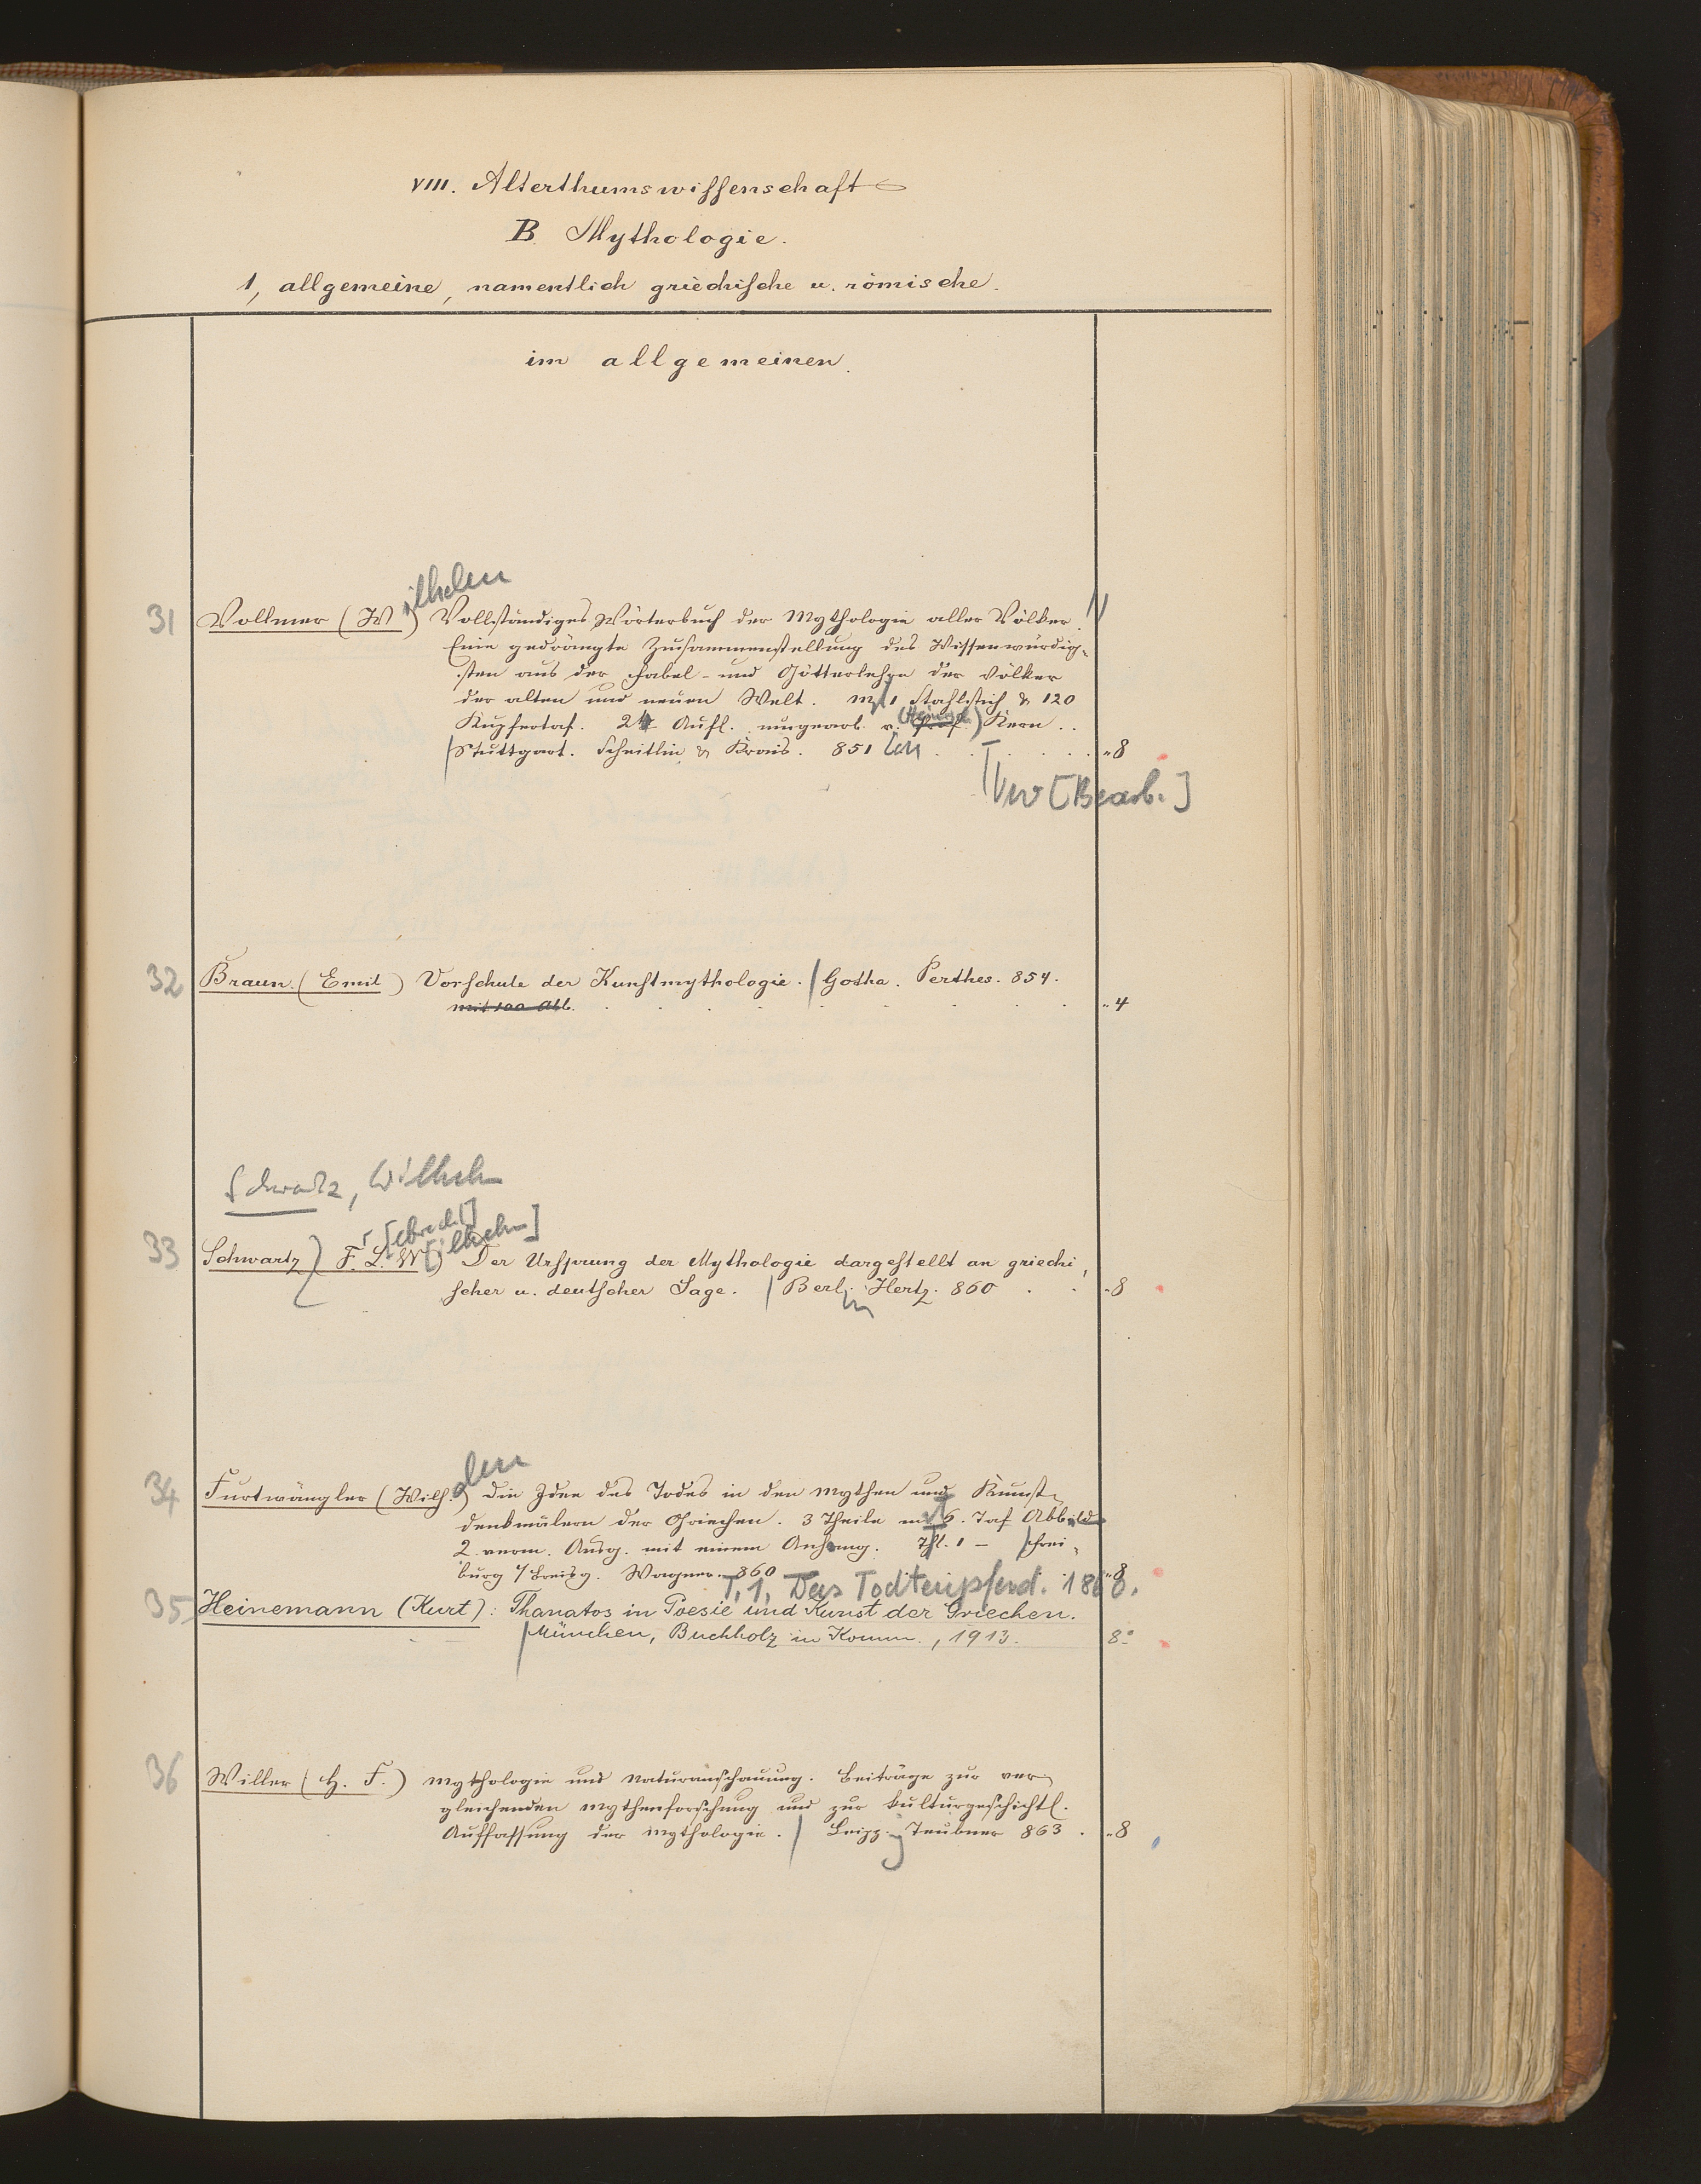 VIII. Alterthumswissenschaft
B. Mythologie.
1, allgemeine, namentlich griechische u. römische.
im allgemeinen.
31 Vollmer (Wilhelm) Vollständiges Wörterbuch der Mythologie aller Völker.
Eine gedrängte Zusammenstellung des Wissenwürdig-
sten aus der Fabel- und Götterlehre der Völker
der alten und neuen Welt. M. 1 Stahlstich & 120
Kupfertaf. 2 Aufl. umgearb. v. Kern ..
Stuttgart. Scheitlin & Krais. 851 .. 8
[Bearb.]
32 Braun (Emil) Vorschule der Kunstmythologie. / Gotha. Perthes. 854.
mit 100 Abb. .. 4
Schwartz, Wilhelm
33 Schwartz) F. L. W[ilhelm] Der Ursprung der Mythologie dargestellt an griechi,
scher u. deutscher Sage. / Berlin. Hertz. 860 .. 8
34 Furtwängler (Wilh.) Die Idee des Todes in den Mythen und Kunst-
denkmälern der Griechen. 3 Theile m. 6. Taf Abbild
2. verm. Ausg. mit einem Anhang. Thl. 1 - / Frei-
burg i/Breisg. Wagner. 860 .. 8
T. 1, Das Todtenpferd. 1860.
35 Heinemann (Kurt): Thanatos in Poesie und Kunst der Griechen.
/ München, Buchholz in Komm., 1913. 8°
36 Willer (H. F.) Mythologie und Naturanschauung. Beiträge zur ver
gleichenden Mythenforschung und zur kulturgeschichtl.
Auffassung der Mythologie. / Leipzig Teubner 863 . .. 8